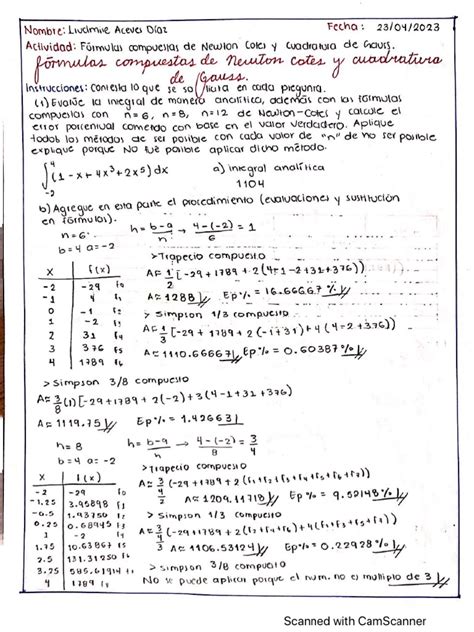 Nombre: Liudmive Aceves Díaz Fecha: 23/04/2023
Actividad: Fórmulas compuestas de Newton Cotes y cuadratura de Gauss.
Fórmulas compuestas de Newton cotes y cuadratura
de Gauss.
Instrucciones: Contesta lo que se solicita en cada pregunta.
(1) Evalúe la integral de manera analítica, además con las fórmulas
compuestas con n=6, n=8, n=12 de Newton-Cotes y calcule el
error porcentual cometido con base en el valor verdadero. Aplique
todos los métodos de ser posible con cada valor de "n" de no ser posible
explique porque no fué posible aplicar dicho método.
∫ 4 -2 (1 - x + 4x³ + 2x⁵) dx a) integral analítica
1104
b) Agregue en esta parte el procedimiento (evaluaciones y sustitución
en fórmulas).
n=6 h= b-a/n → 4-(-2)/6 = 1
b=4 a=-2
>Trapecio compuesto
x f(x)
-2 -29 f0
-1 4 f1
0 -1 f2
1 -2 f3
2 31 f4
3 376 f5
4 1789 f6
A≈ 1/2 [-29+1789+2(4-1-2+31+376)]
A≈ 1288 Ep%= 16.66667%
> Simpson 1/3 compuesto
A≈ 1/3 [-29+1789+2(-1+31)+4(4-2+376)]
A≈ 1110.66667 Ep%= 0.60387%
> Simpson 3/8 compuesto
A≈ 3/8 (1)[-29+1789+2(-2)+3(4-1+31+376)
A≈ 1119.75 Ep%= 1.42663
n=8 h= b-a/n → 4-(-2)/8 = 3/4
b=4 a=-2
>Trapecio compuesto
x f(x)
-2 -29 f0
-1.25 3.95898 f1
-0.5 1.93750 f2
0.25 0.68945 f3
1 -2 f4
1.75 10.63867 f5
2.5 131.31250 f6
3.25 585.61914 f7
4 1789 f8
A≈ (-29+1789+2(f1+f2+f3+f4+f5+f6+f7))
A≈ 1209.11718 Ep%= 9.52148%
> Simpson 1/3 compuesto
(-29+1789+2(f2+f4+f6)+4(f1+f3+f5+f7))
A≈ 1106.53124 Ep%= 0.22928%
> Simpson 3/8 compuesto
No se puede aplicar porque el num. no es multiplo de 3
Scanned with CamScanner